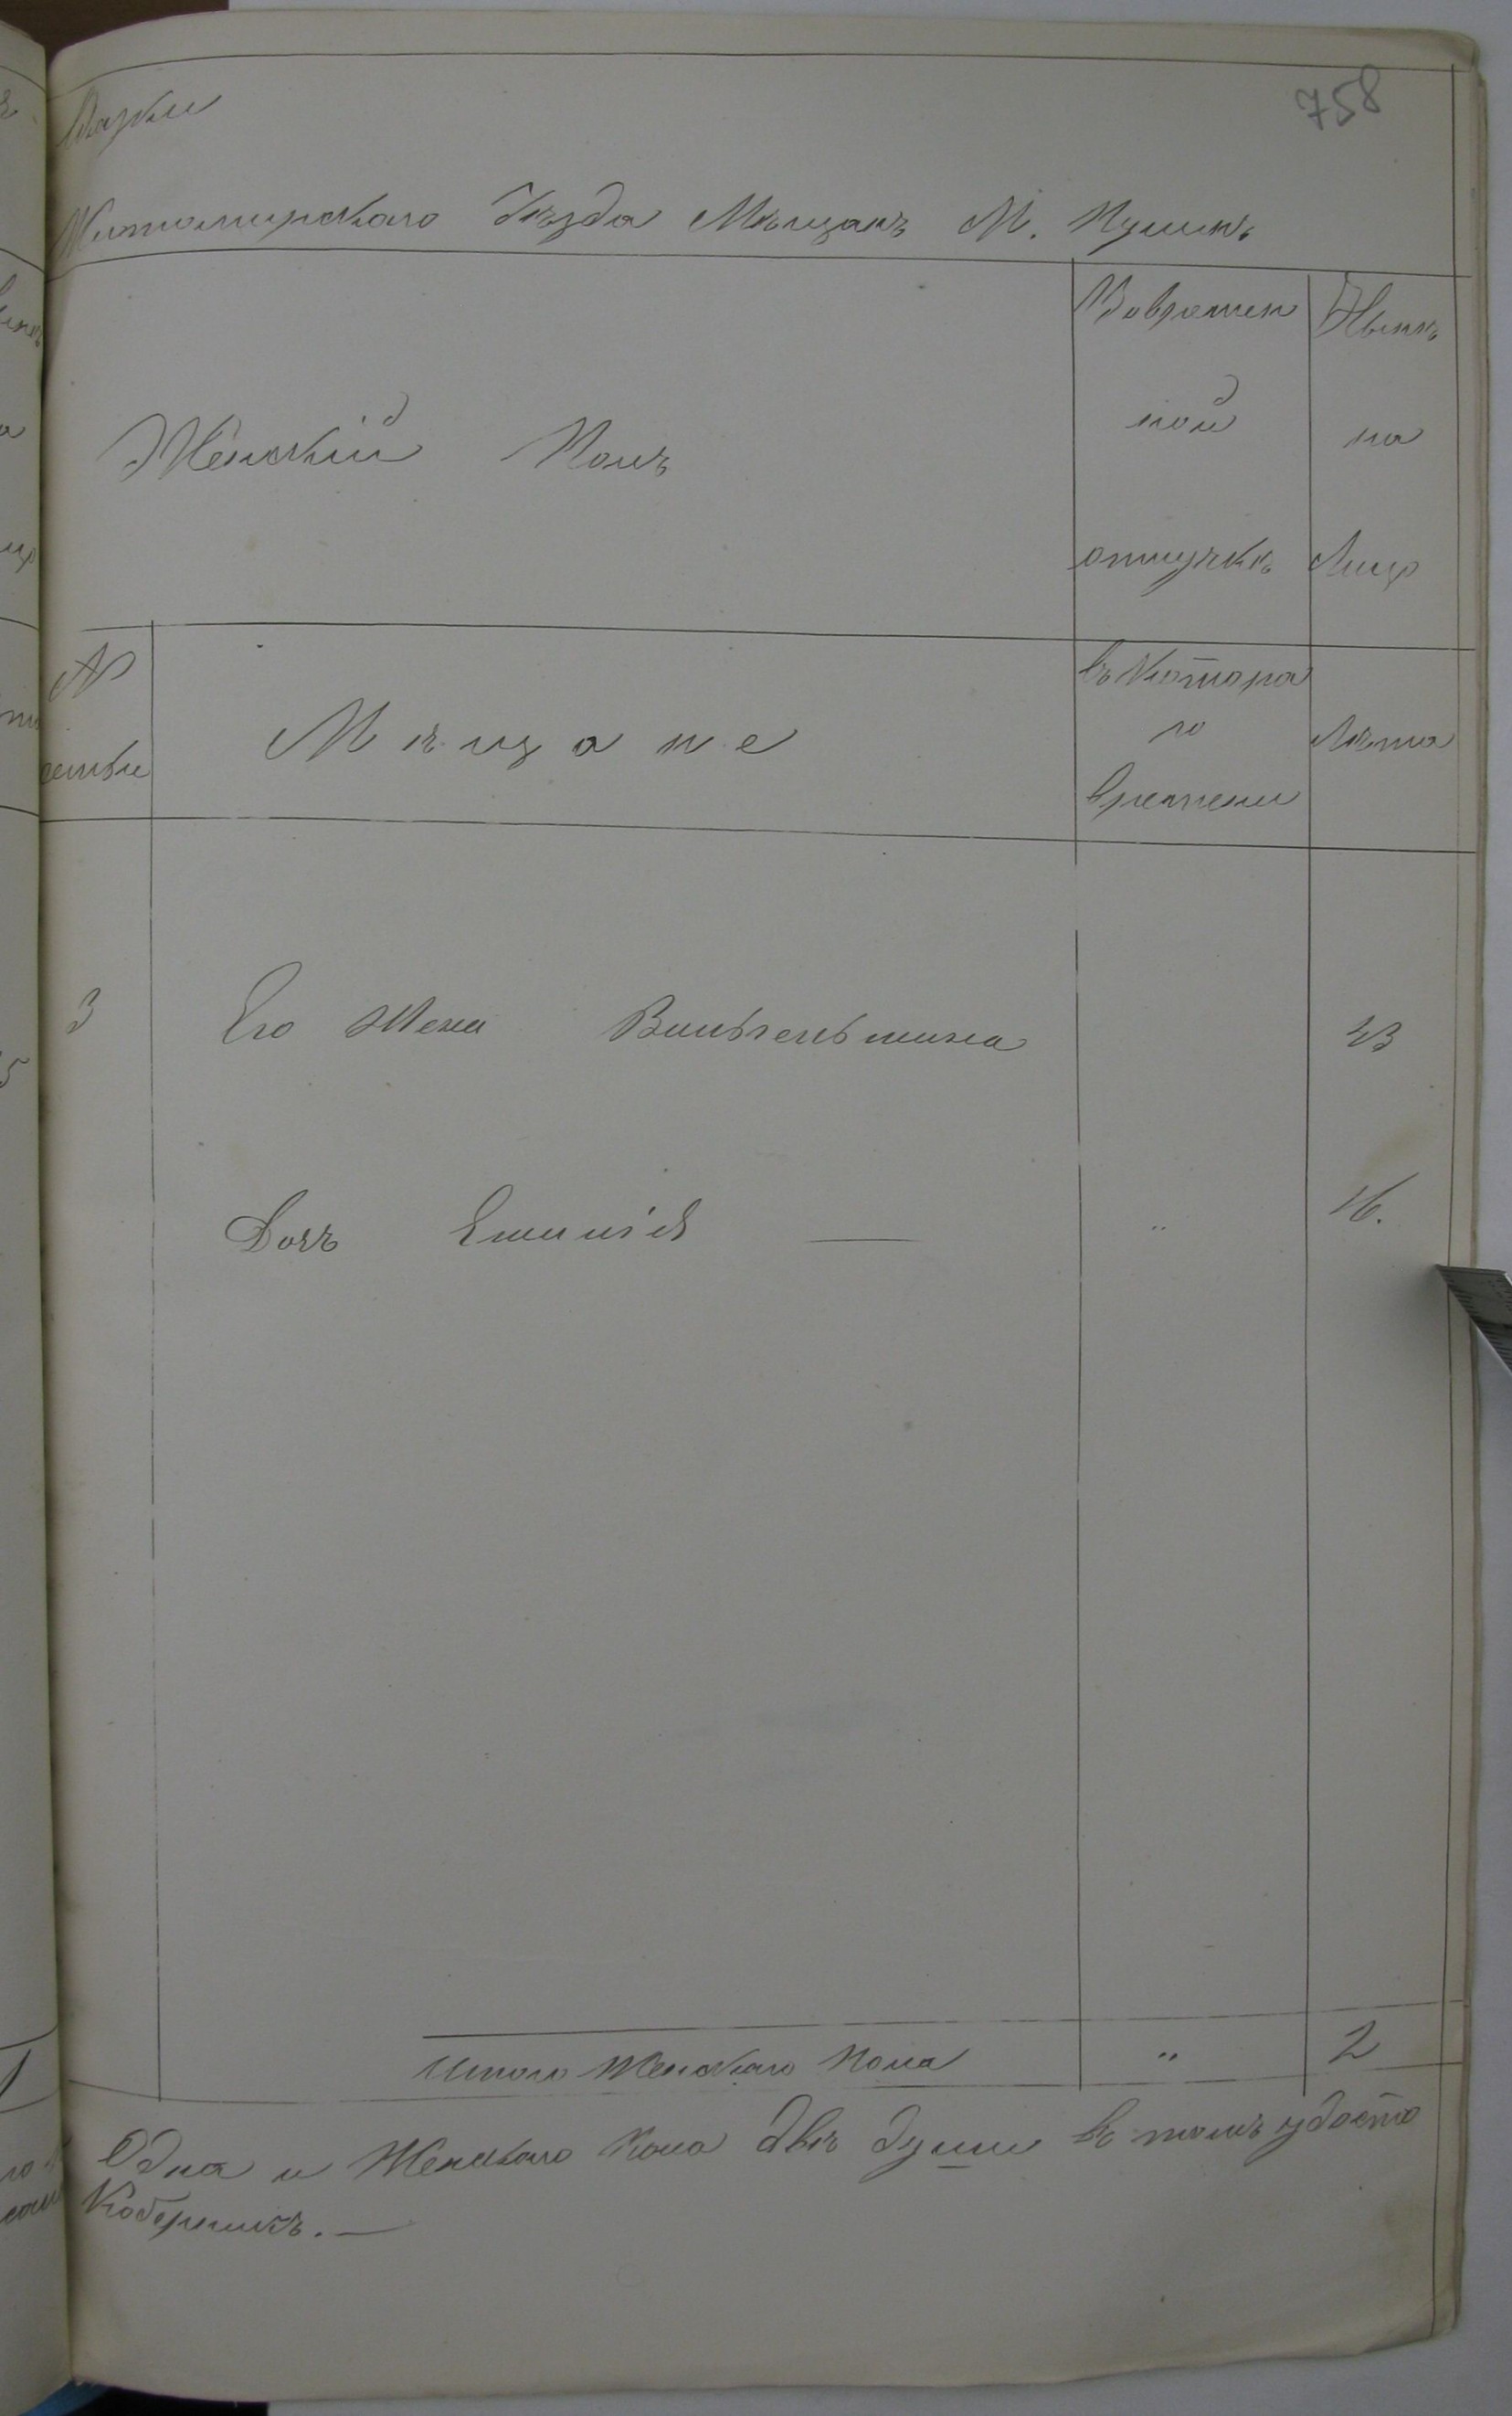 758
Сказки
Житомирскаго Уѣзда Мѣщанъ М. Пулинъ
Женскій Полъ
Вовремен
ной
отлучкѣ
Нынѣ
на
Лицо
№
семьи
Мѣщане
въ Котора
го
времени
Лѣта
3 Его Жена Вильгельмина 43
Дочъ Емилія — " 16.
Итого Женскаго Пола " 2
Одна и Женскаго пола двѣ души въ томъ удосто